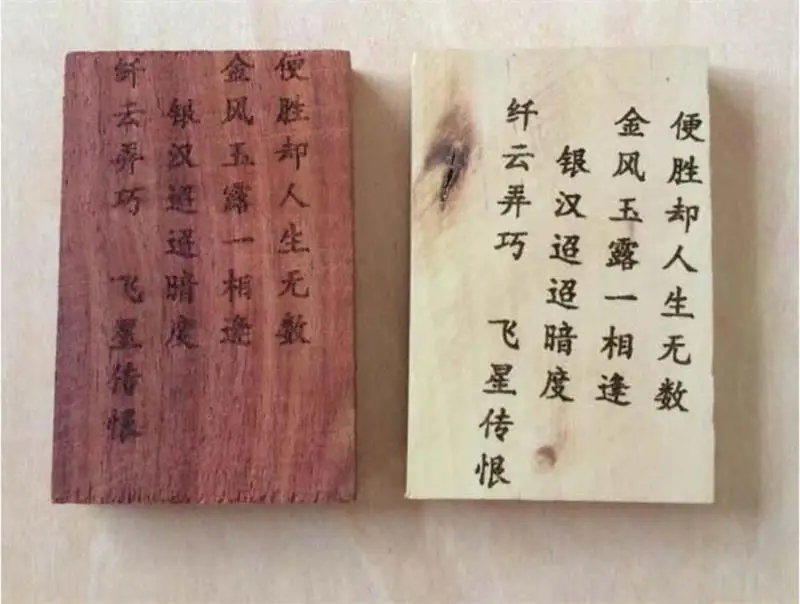 纤云弄巧 飞星传恨
银汉迢迢暗度
金风玉露一相逢
便胜却人生无数
纤云弄巧 飞星传恨
银汉迢迢暗度
金风玉露一相逢
便胜却人生无数